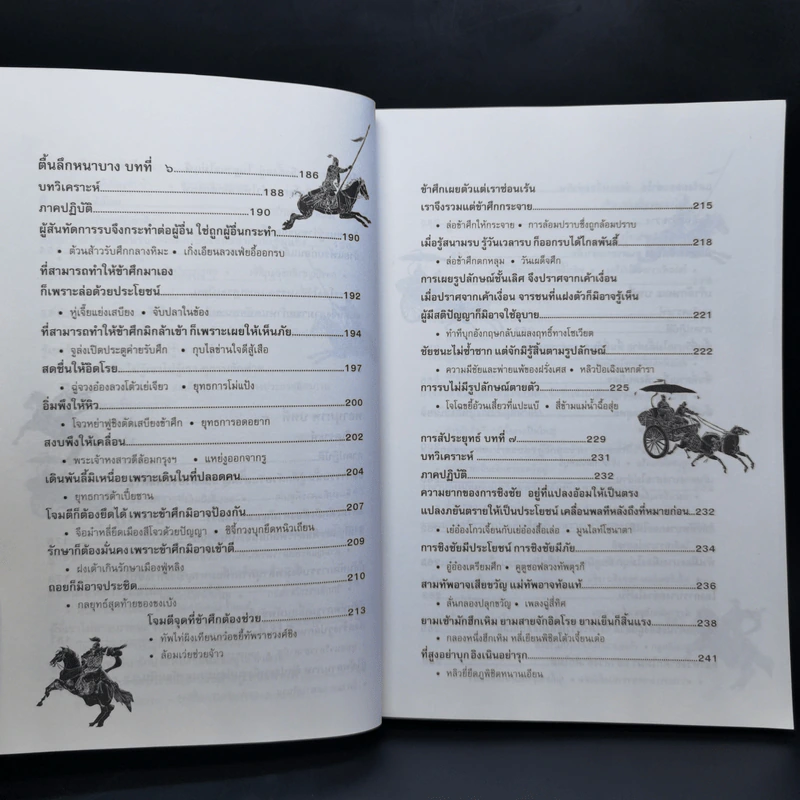 ตื้นลึกหนาบาง บทที่ ๖ 186
บทวิเคราะห์ 188
ภาคปฏิบัติ 190
ผู้สันทัดการรบจึงกระทำต่อผู้อื่น ใช่ถูกผู้อื่นกระทำ 190
• ต้วนส้าวรับศึกกลางหิมะ • เกิ่งเอียนลวงเฟ่ยอี้ออกรบ
ที่สามารถทำให้ข้าศึกมาเอง
ก็เพราะล่อด้วยประโยชน์ 192
• หู่เจี้ยแย่งเสบียง • จับปลาในข้อง
ที่สามารถทำให้ข้าศึกมิกล้าเข้า ก็เพราะเผยให้เห็นภัย 194
• ฐูล่งเปิดประตูค่ายรับศึก • กุบไลข่านใจดีสู้เสือ
สดชื่นให้อิดโรย 197
• ฉู่จวงอ๋องลวงโต้วเย่เจียว • ยุทธการโม่แป้ง
อิ่มพึงให้หิว 200
• โจวหย่าฟูชิงตัดเสบียงข้าศึก • ยุทธการอดอยาก
สงบพึงให้เคลื่อน 202
• พระเจ้าหงสาวดีล้อมกรุงฯ • แหย่งูออกจากรู
เดินพันลี้มิเหนื่อย เพราะเดินในที่ปลอดคน 204
• ยุทธการต้าเปี๋ยซาน
โจมตีก็ต้องยึดได้ เพราะข้าศึกมิอาจป้องกัน 207
• จือม้าหลี่ยึดเมืองสีโจวด้วยปัญญา • ชิจี้กวงบุกยึดหนิวเถียน
รักษาก็ต้องมั่นคง เพราะข้าศึกมิอาจเข้าตี 209
• ฝงเต้าเกินรักษาเมืองฟู่หลิง
ถอยก็มิอาจประชิด 210
• กลยุทธ์สุดท้ายของขงเบ้ง
โจมตีจุดที่ข้าศึกต้องช่วย 213
• ทัพไท่ผิงเทียนกว๋อขยี้ทัพราชวงศ์ชิง
• ล้อมเว่ยช่วยจ้าว
ข้าศึกเผยตัวแต่เราซ่อนเร้น
เราจึงรวมแต่ข้าศึกกระจาย 215
• ล่อข้าศึกให้กระจาย • การล้อมปราบซึ่งถูกล้อมปราบ
เมื่อรู้สนามรบ รู้วันเวลารบ ก็ออกรบได้ไกลพันลี้ 218
• ล่อข้าศึกตกหลุม • วันเผด็จศึก
การเผยรูปลักษณ์ชั้นเลิศ จึงปราศจากเค้าเงื่อน
เมื่อปราศจากเค้าเงื่อน จารชนที่แฝงตัวก็มิอาจรู้เห็น
ผู้มีสติปัญญาก็มิอาจใช้อุบาย 221
• ทำทีบุกอังกฤษกลับแผลงฤทธิ์ทางโซเวียต
ชัยชนะไม่ซ้ำซาก แต่จักมิรู้สิ้นตามรูปลักษณ์ 222
• ความมีชัยและพ่ายแพ้ของฝรั่งเศส • หลิวป๋อเฉิงแหกตำรา
การรบไม่มีรูปลักษณ์ตายตัว 225
• โจโฉขยี้อ้วนเสี้ยวที่แปะแบ๊ • สี่ข้ามแม่น้ำฉื้อสุ่ย
การสัประยุทธ์ บทที่ ๗ 229
บทวิเคราะห์ 231
ภาคปฏิบัติ 232
ความยากของการชิงชัย อยู่ที่แปลงอ้อมให้เป็นตรง
แปลงภยันตรายให้เป็นประโยชน์ เคลื่อนพลทีหลังถึงที่หมายก่อน 232
• เย่อ๋องโกวเจี้ยนกับเย่อ๋องสื้อเล่อ • มูนไลท์โซนาตา
การชิงชัยมีประโยชน์ การชิงชัยมีภัย 234
• อู๋อ๋องเตรียมศึก • คูตูซอฟลวงทัพตุรกี
สามทัพอาจเสียขวัญ แม่ทัพอาจท้อแท้ 236
• ลั่นกลองปลุกขวัญ • เพลงฉู่สี่ทิศ
ยามเช้ามักฮึกเหิม ยามสายจักอิดโรย ยามเย็นก็สิ้นแรง 238
• กลองหนึ่งฮึกเหิม หลี่เซียนพิชิตโต้วเจี้ยนเต๋อ
ที่สูงอย่าบุก อิงเนินอย่ารุก 241
• หลิวยี่ยึดภูพิชิตหนานเอียน